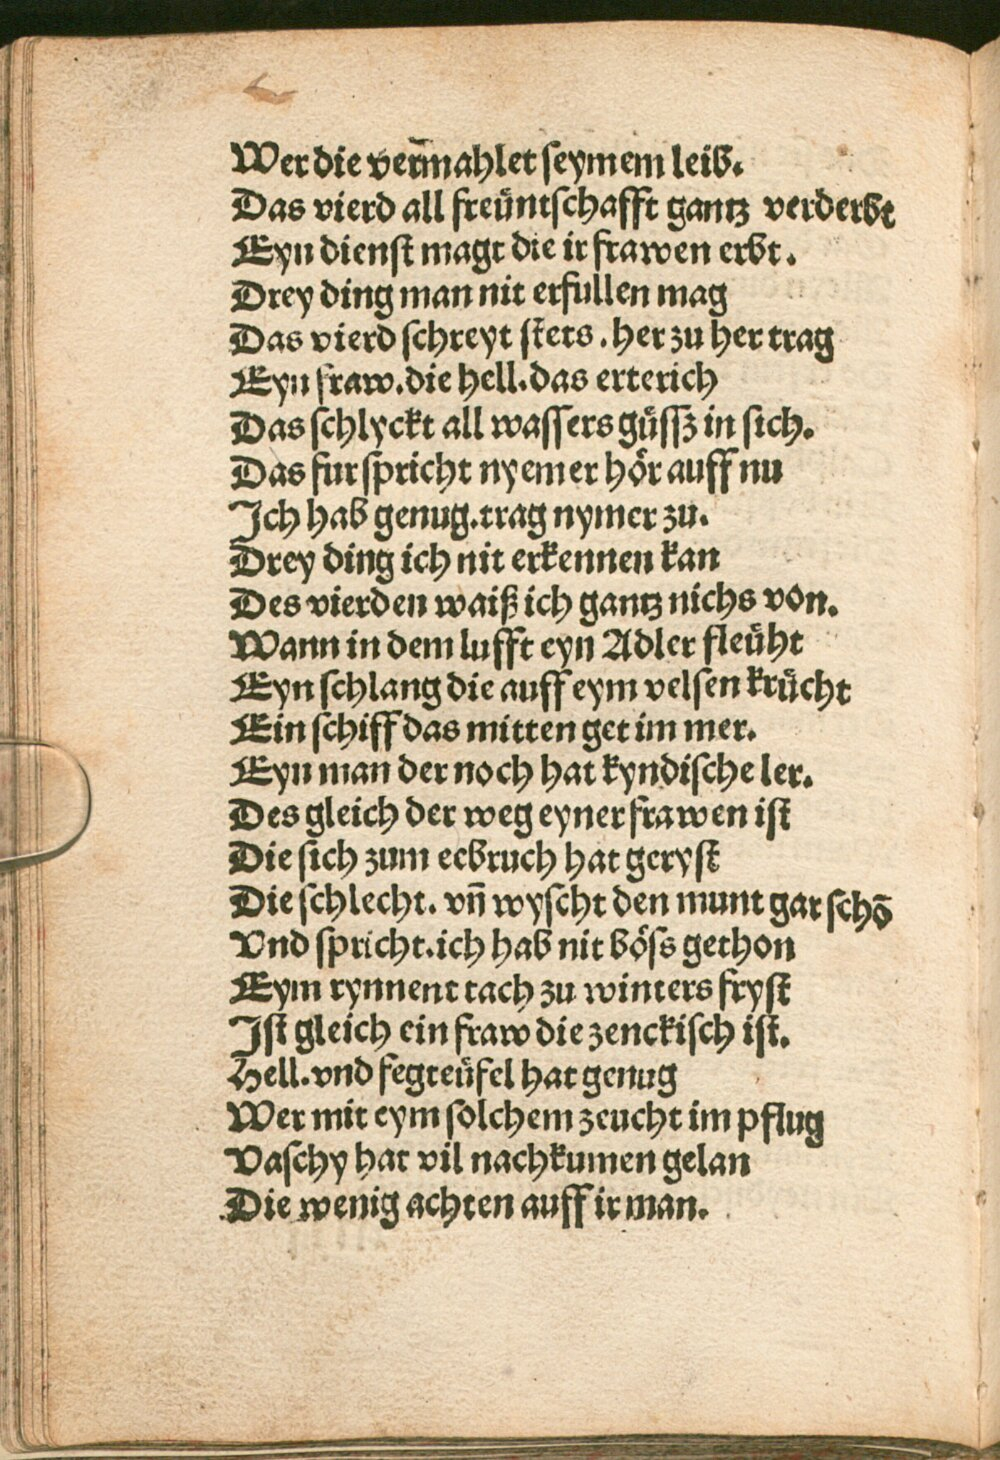 Wer die verm̄ahlet seymem leib.
Das vierd all freüntschafft gantz verderbt
Eyn dienst magt die ir frawen erbt.
Drey ding man nit erfullen mag
Das vierd schreyt stets. her zu her trag
Eyn fraw. die hell. das erterich
Das schlyckt all wassers güssz in sich.
Das fur spricht nyemer hör auff nu
Ich hab genug. trag nymer zu.
Drey ding ich nit erkennen kan
Des vierden waiß ich gantz nichs von.
Wann in dem lufft eyn Adler fleüht
Eyn schlang die auff eym velsen krücht
Ein schiff das mitten get im mer.
Eyn man der noch hat kyndische ler.
Des gleich der weg eyner frawen ist
Die sich zum eebruch hat geryst
Die schlecht. vn̄ wyscht den munt gar schō
Vnd spricht. ich hab nit böss gethon
Eym rynnent tach zu winters fryst
Ist gleich ein fraw die zenckisch ist.
Hell. vnd fegteüfel hat genug
Wer mit eym solchem zeucht im pflug
Vaschy hat vil nachkumen gelan
Die wenig achten auff ir man.